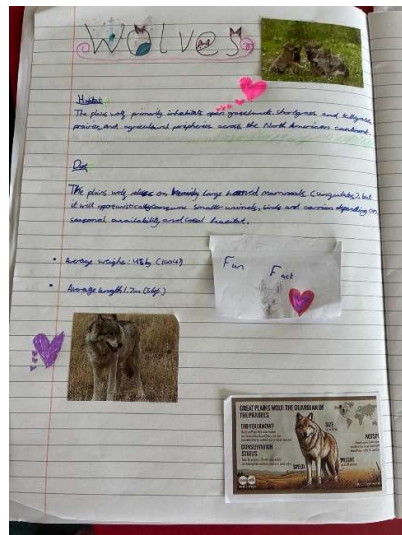 Wolves
Habitat
The plains wolf primarily inhabits open grasslands, shortgrass and tallgrass
prairies, and agricultural peripheries across the North American continent.
Diet
The plains wolf on large hooved mammals (ungulates), but
it will opportunistically consume smaller animals, birds and carrion depending on
seasonal availability and local habitat.
• Average weight: 45kg (100lb)
Fun Fact
• Average length 1.7m
GREAT PLAINS WOLF: THE GUARDIAN OF
THE PRAIRIES
DID YOU KNOW?
SIZE
CONSERVATION
STATUS
WEIGHT
SPEED